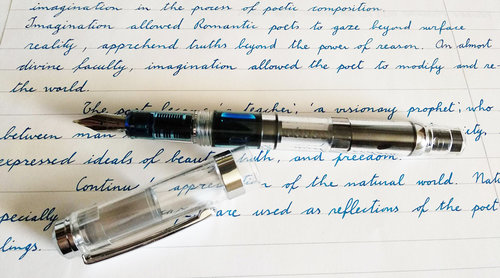 imagination in the process of poetic composition.
Imagination allowed Romantic poets to gaze beyond surface
reality, apprehend truths beyond the power of reason. An almost
divine faculty, imagination allowed the poet to modify and re-
the world.
The poet teacher; 'a visionary prophet'; who
between man
expressed ideals of beauty, truth, and freedom.
of the natural world.
are used as reflections of the poet